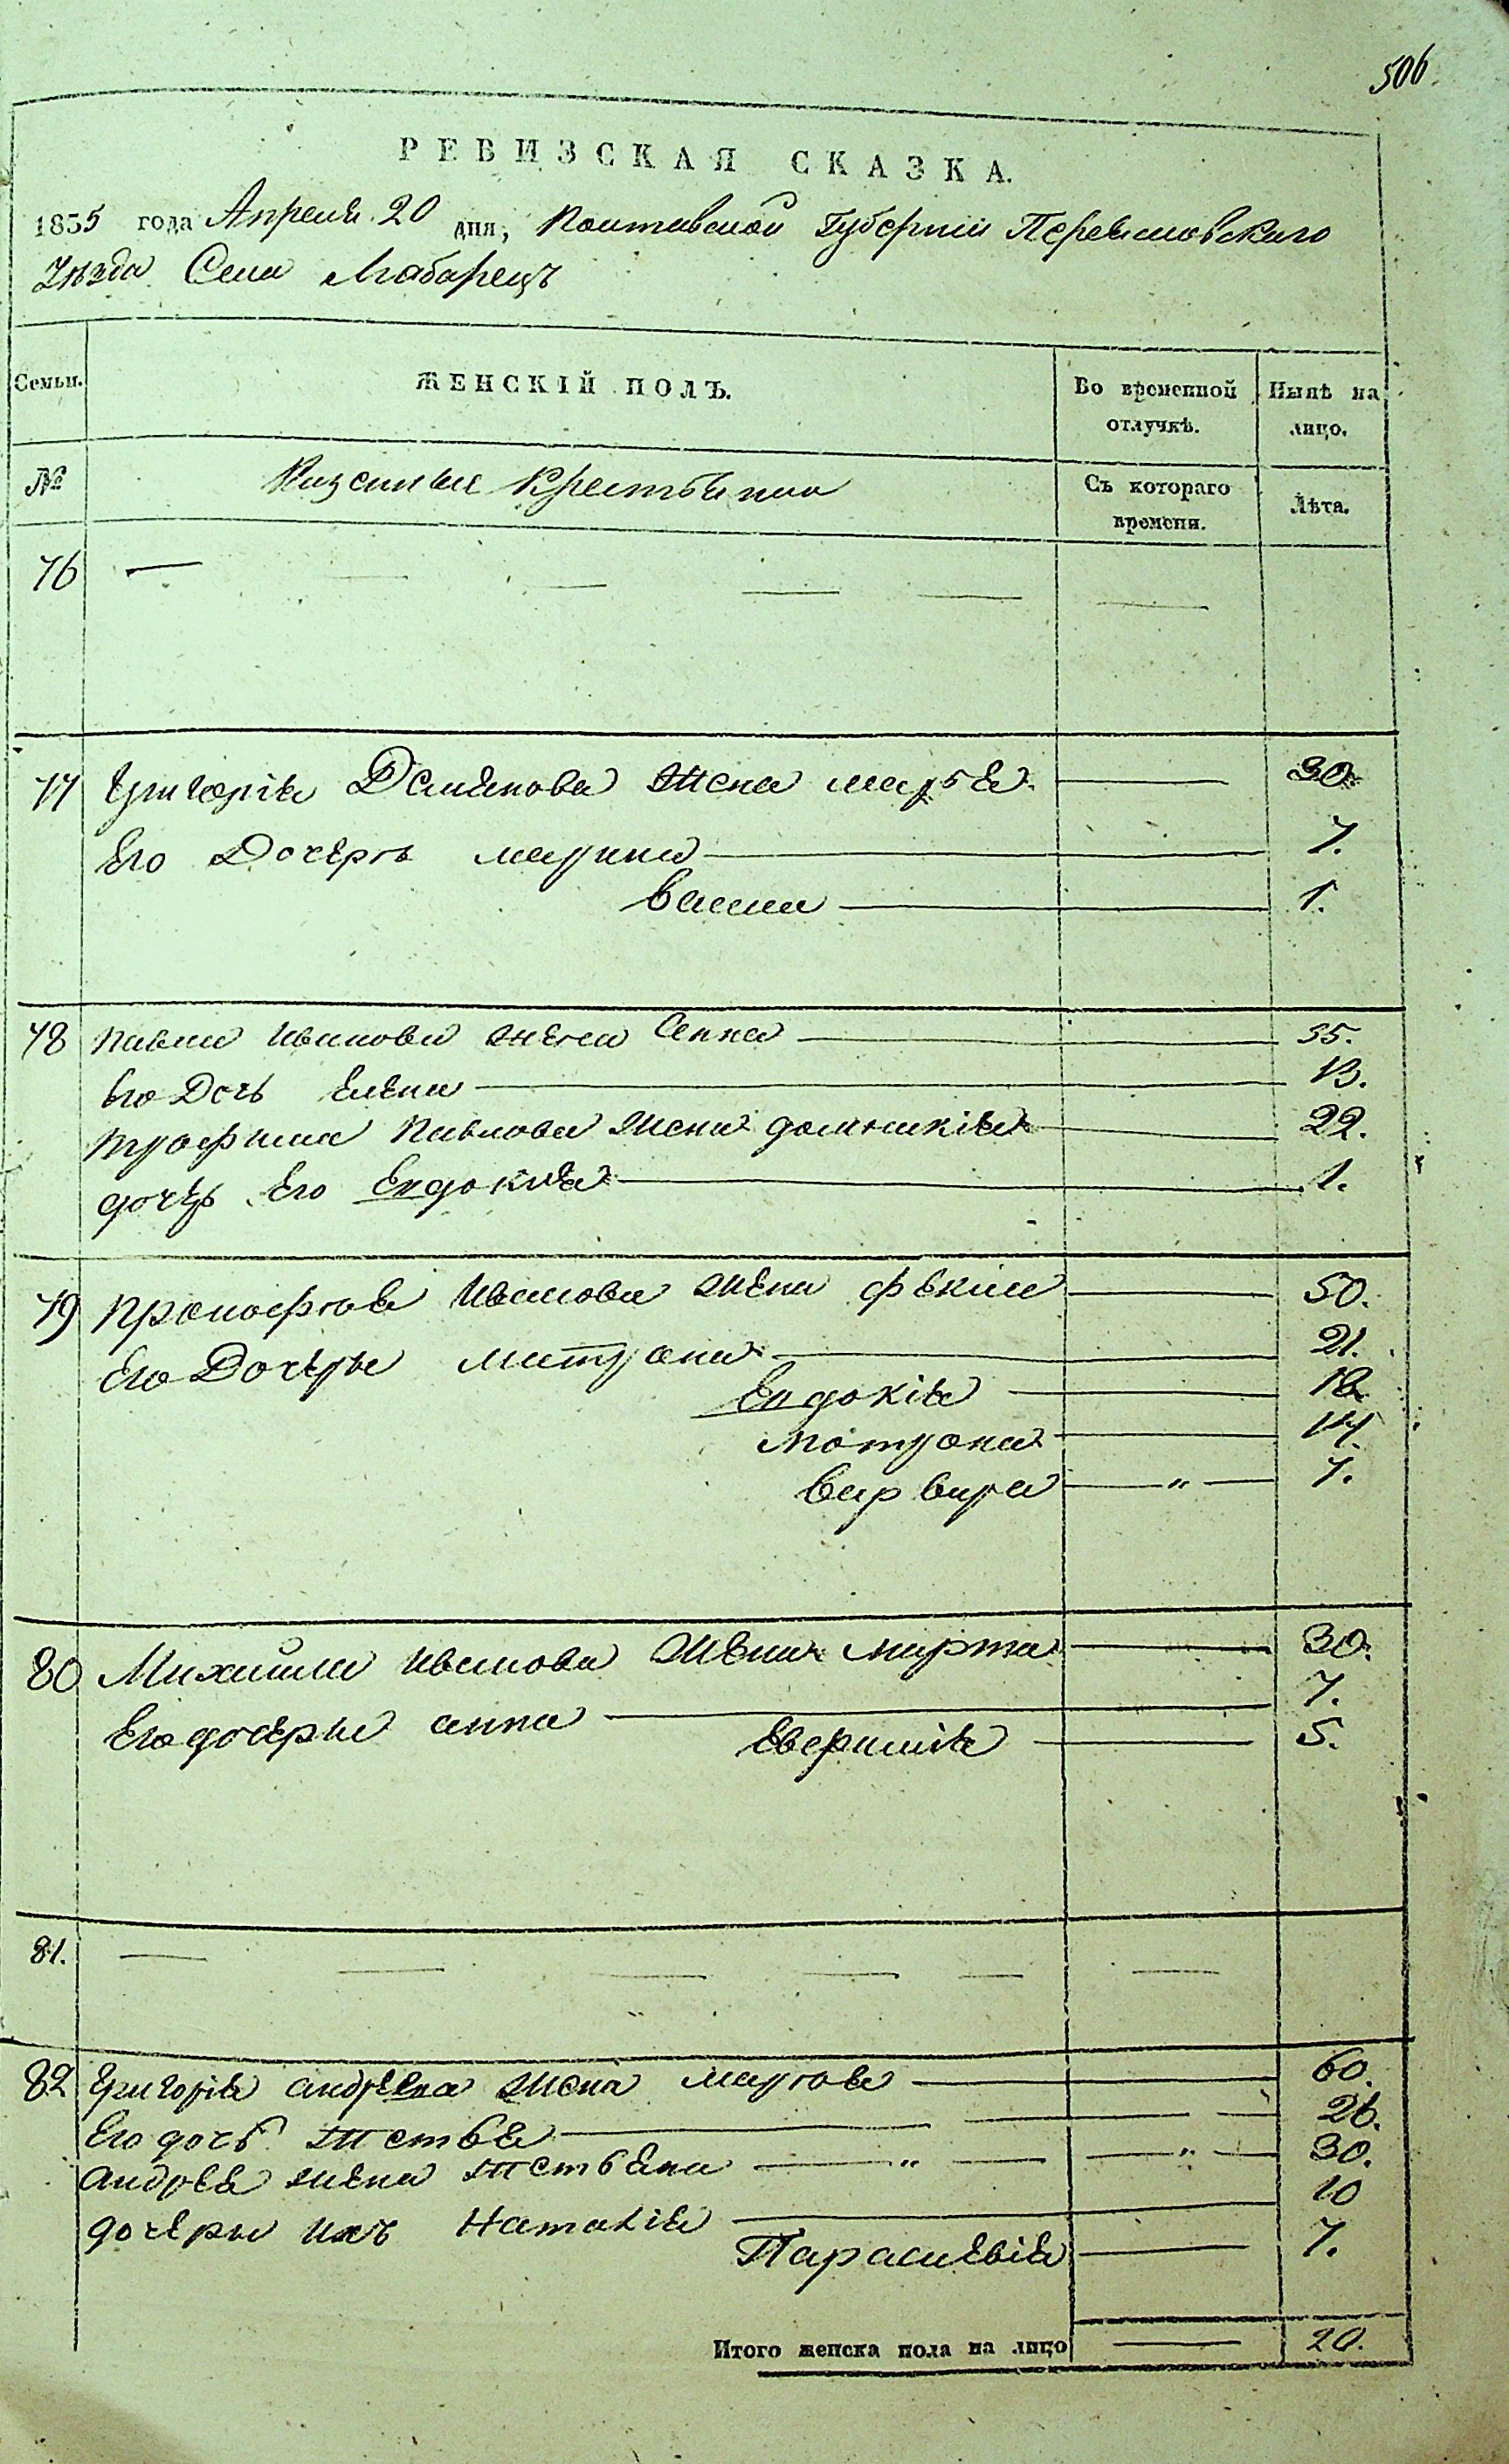 506.
РЕВИЗСКАЯ СКАЗКА.
1835 года Апреля 20 дня, Полтавской Губернии Переяславскаго
Уѣзда Села Мабарецъ
Семьи. ЖЕНСКІЙ ПОЛЪ. Во временной отлучкѣ. Нынѣ на лицо.
№ Казенные Крестьяне Съ котораго времени. Лѣта.
76 — — — — — —
77 Григорія Демянова жена марья — 30.
Его Дочерь марина — 7.
васса — 1.
78 павла иванова жена Анна — 35.
его Дочь елена — 13.
трофима павлова жена домникія — 22.
дочерь Его Евдокия — 1.
79 прокофія иванова жена фекла — 50.
Его Дочеры матрона — 21.
Евдокія — 18.
мотрона — 14.
варвара — „ — 7.
80 Михайла иванова жена марта — 30.
Его дочеры анна — 7.
Евфимія — 5.
81. — — — — — —
82 Григорія андреева жена марія — 60.
Его дочь — — — 26.
андрея жена — „ — — „ — 30.
дочеры ихъ Наталія — 10
Параскевія — 7.
Итого женска пола на лицо — 20.